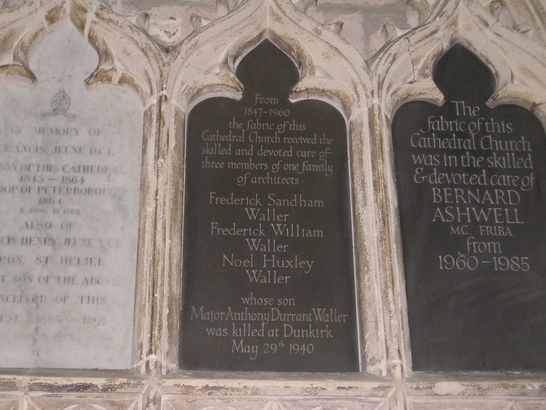 IN MEMORY OF
FRANCIS JEUNE D.C.L.
1864
ALSO OF
From
1847-1960
the fabric of this
Cathedral Church received the
skilled and devoted care of
three members of one family
of architects
Frederick Sandham
Waller
Frederick William
Waller
Noel Huxley
Waller
whose son
Major Anthony Durrant Waller
was killed at Dunkirk
May 29th 1940
The
fabric of this
Cathedral Church
was in the skilled
& devoted care of
BERNARD
ASHWELL
MC FRIBA
from
1960-1985